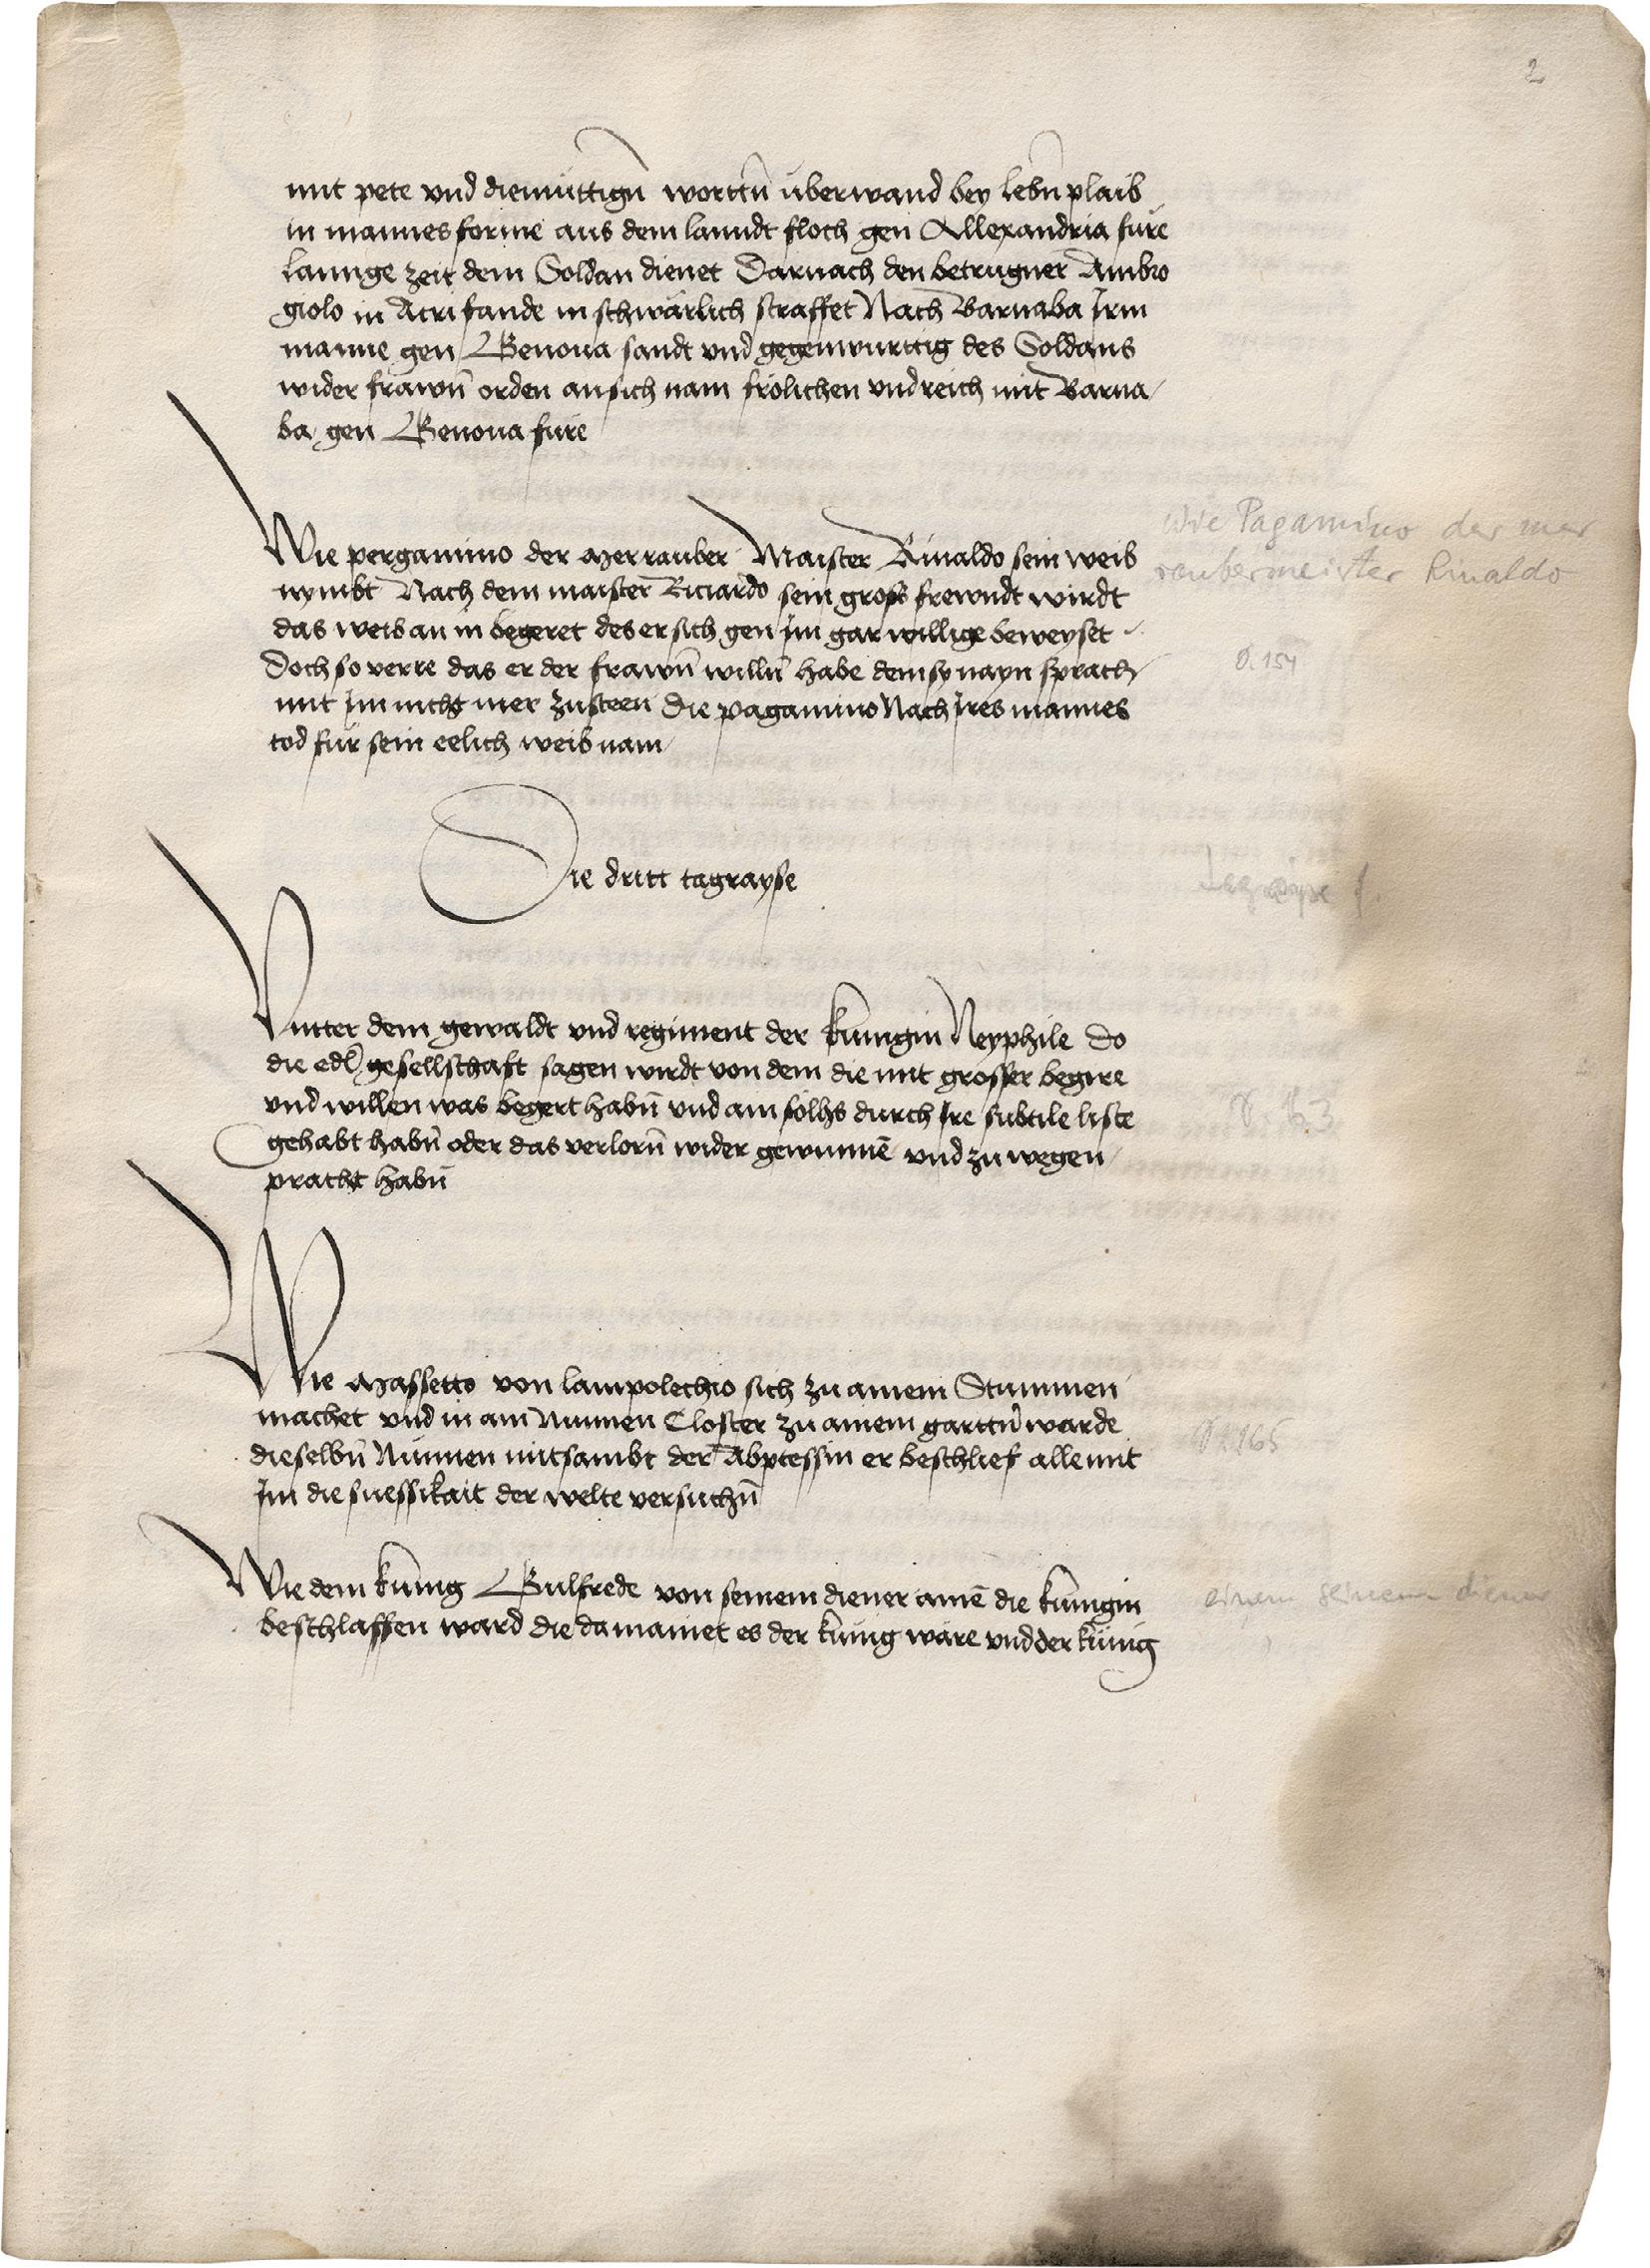 2
mit pete vnd diemüttigñ worttñ überwand bey lebñ plaib
in mannes forme aus dem lanndt floch gen Allexandria fure
lannge zeit dem Soldan dienet Darnach den betrugner Ambro
giolo in Acri fande in schwärlich straffet Nach Barnaba Irm
manne gen Genoua sandt vnd gegenwurttig des Soldans
wider frawñ orden an sich nam frölichen vnd reich mit Barna
ba gen Genoua fure
Wie pergamino der Merrauber Maister Rinaldo sein weib
nymbt Nach dem maister Riciardo sein gross frewndt wirdt
das weib an in begeret des er sich gen Im gar willige beweyset
Doch so verre das er der frawñ willñ habe dem sy nayn sprach
mit Im nicht mer zusteen Die pagamino Nach Ires mannes
tod für sein eelich weib nam
Wie Pagamino der mer
raubermeister Rinaldo
D. 154
Die dritt tagrayse
Vntter dem gewaldt vnd regiment der kunigin Neyphile Do
die edl gesellschaft sagen wirdt von dem die mit grosser begire
vnd willen was begert habñ vnd am sölhs durch Ire subtile liste
gehabt habñ oder das verlorñ wider gewunnē vnd zu wegen
pracht habñ
163
Wie Massetto von lampolechio sich zu ainem Stummen
machet vnd in ain Nunnen Closter zu ainem garttñ warde
dieselbñ Nunnen mitsambt der Abptessin er beschlief alle mit
Im die suessikait der welte versuchñ
165
Wie dem kunig Gulfrede von seinem diener ainē die kunigin
beschlaffen ward die da mainet es der kunig wäre vnd der künig
einem seinem diener